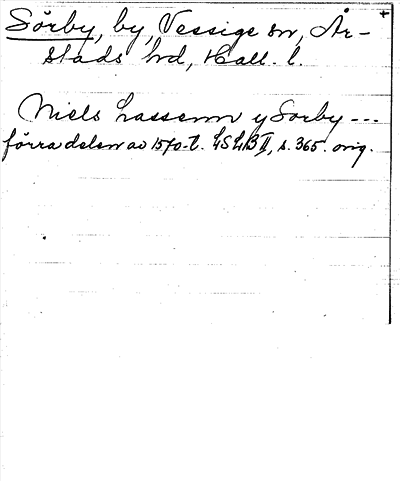 Sörby, by, Vessige sn, År-
stads hd, Hall. l.
Niels Lassenn y Sorby ---
förra delen av 1570-t. LSLB II, s. 365. orig.